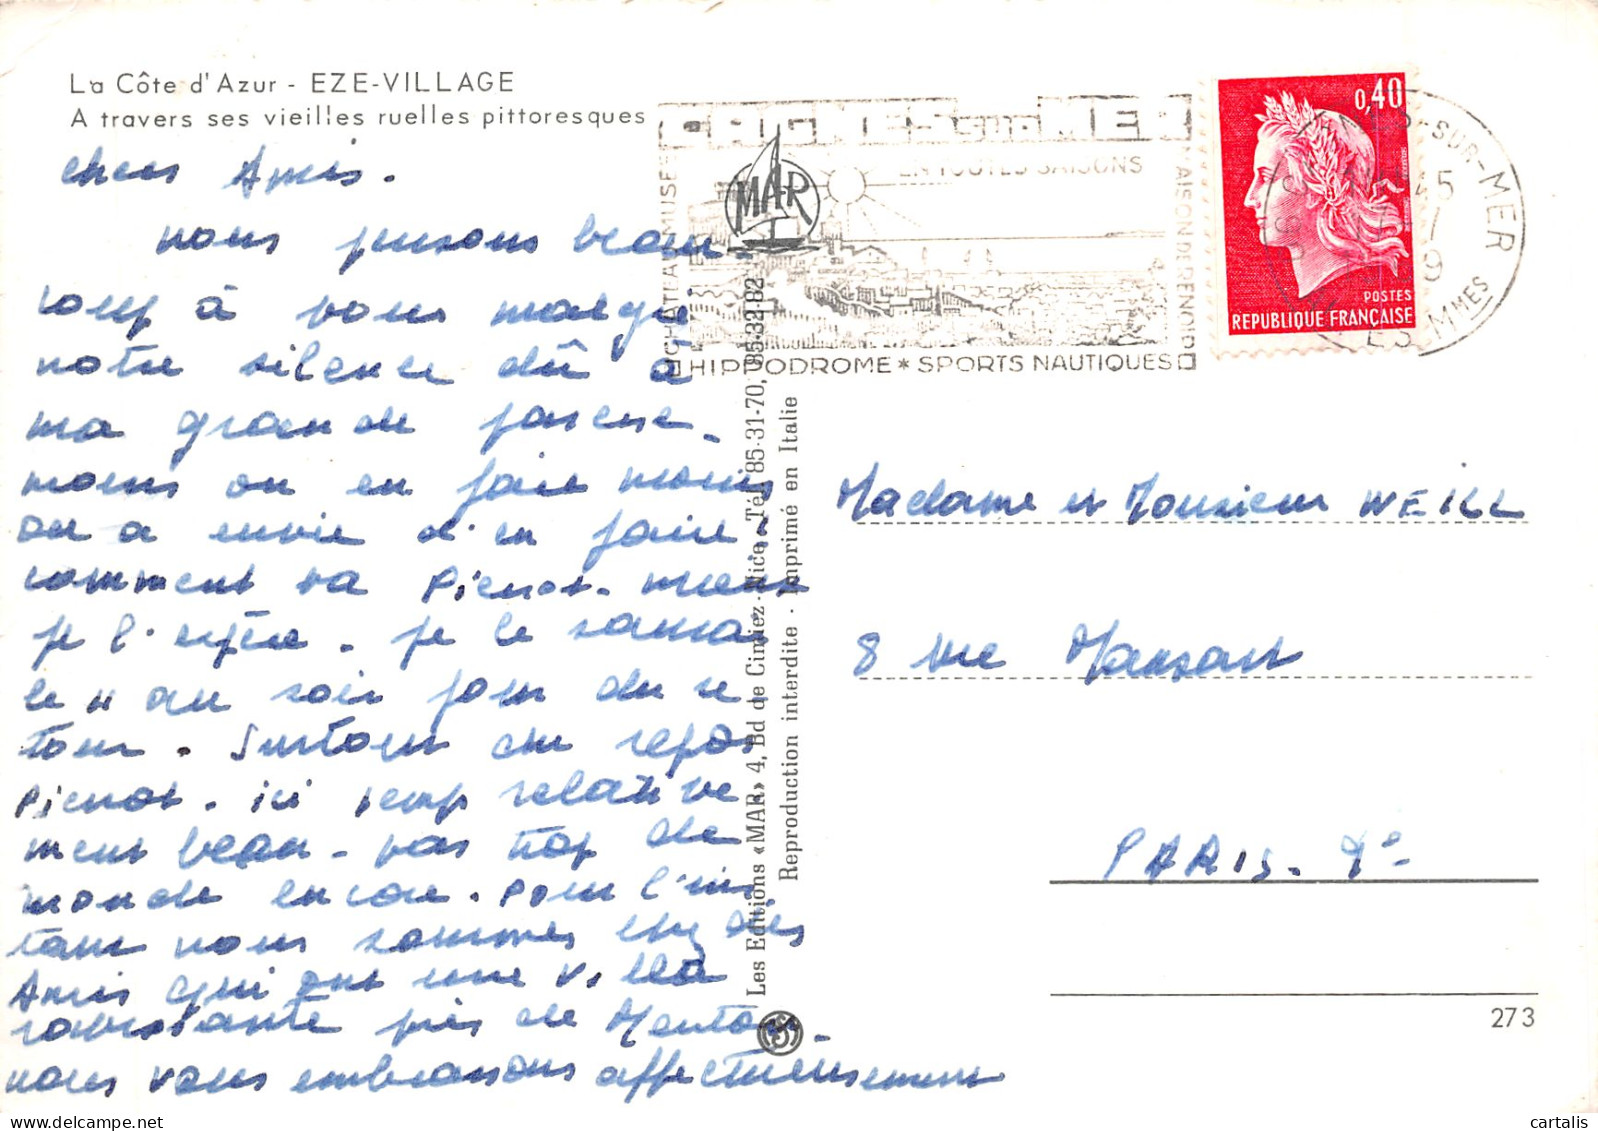 La Côte d'Azur - EZE-VILLAGE
A travers ses vieilles ruelles pittoresques
chers Amis.
nous pensons beau-
coup à vous malgré
notre silence dû à
ma grande paresse.
moins on en fait moins
on a envie d'en faire.
comment va Pierrot. mieux
je l'espère. je le saurai
le 11 au soir jour du re-
tour. Surtout du repos
Pierrot. ici temps relative
ment beau - pas trop de
monde encore. Pour l'ins
tant nous sommes chez des
Amis qui ont une villa
près de Menton.
nous vous embrassons affectueusement
CAGNES-sur-MER
EN TOUTES SAISONS
CHATEAU MUSEE
MAISON DE RENOIR
HIPPODROME * SPORTS NAUTIQUES
MAR
0,40
POSTES
REPUBLIQUE FRANÇAISE
-SUR-MER
45
Les Editions «MAR» 4, Bd de Cimiez - Nice - Tél. 85-31-70, 85-32-82
Reproduction interdite - Imprimé en Italie
Madame et Monsieur WEILL
8 rue Mansart
PARIS. 9e
273
cartalis